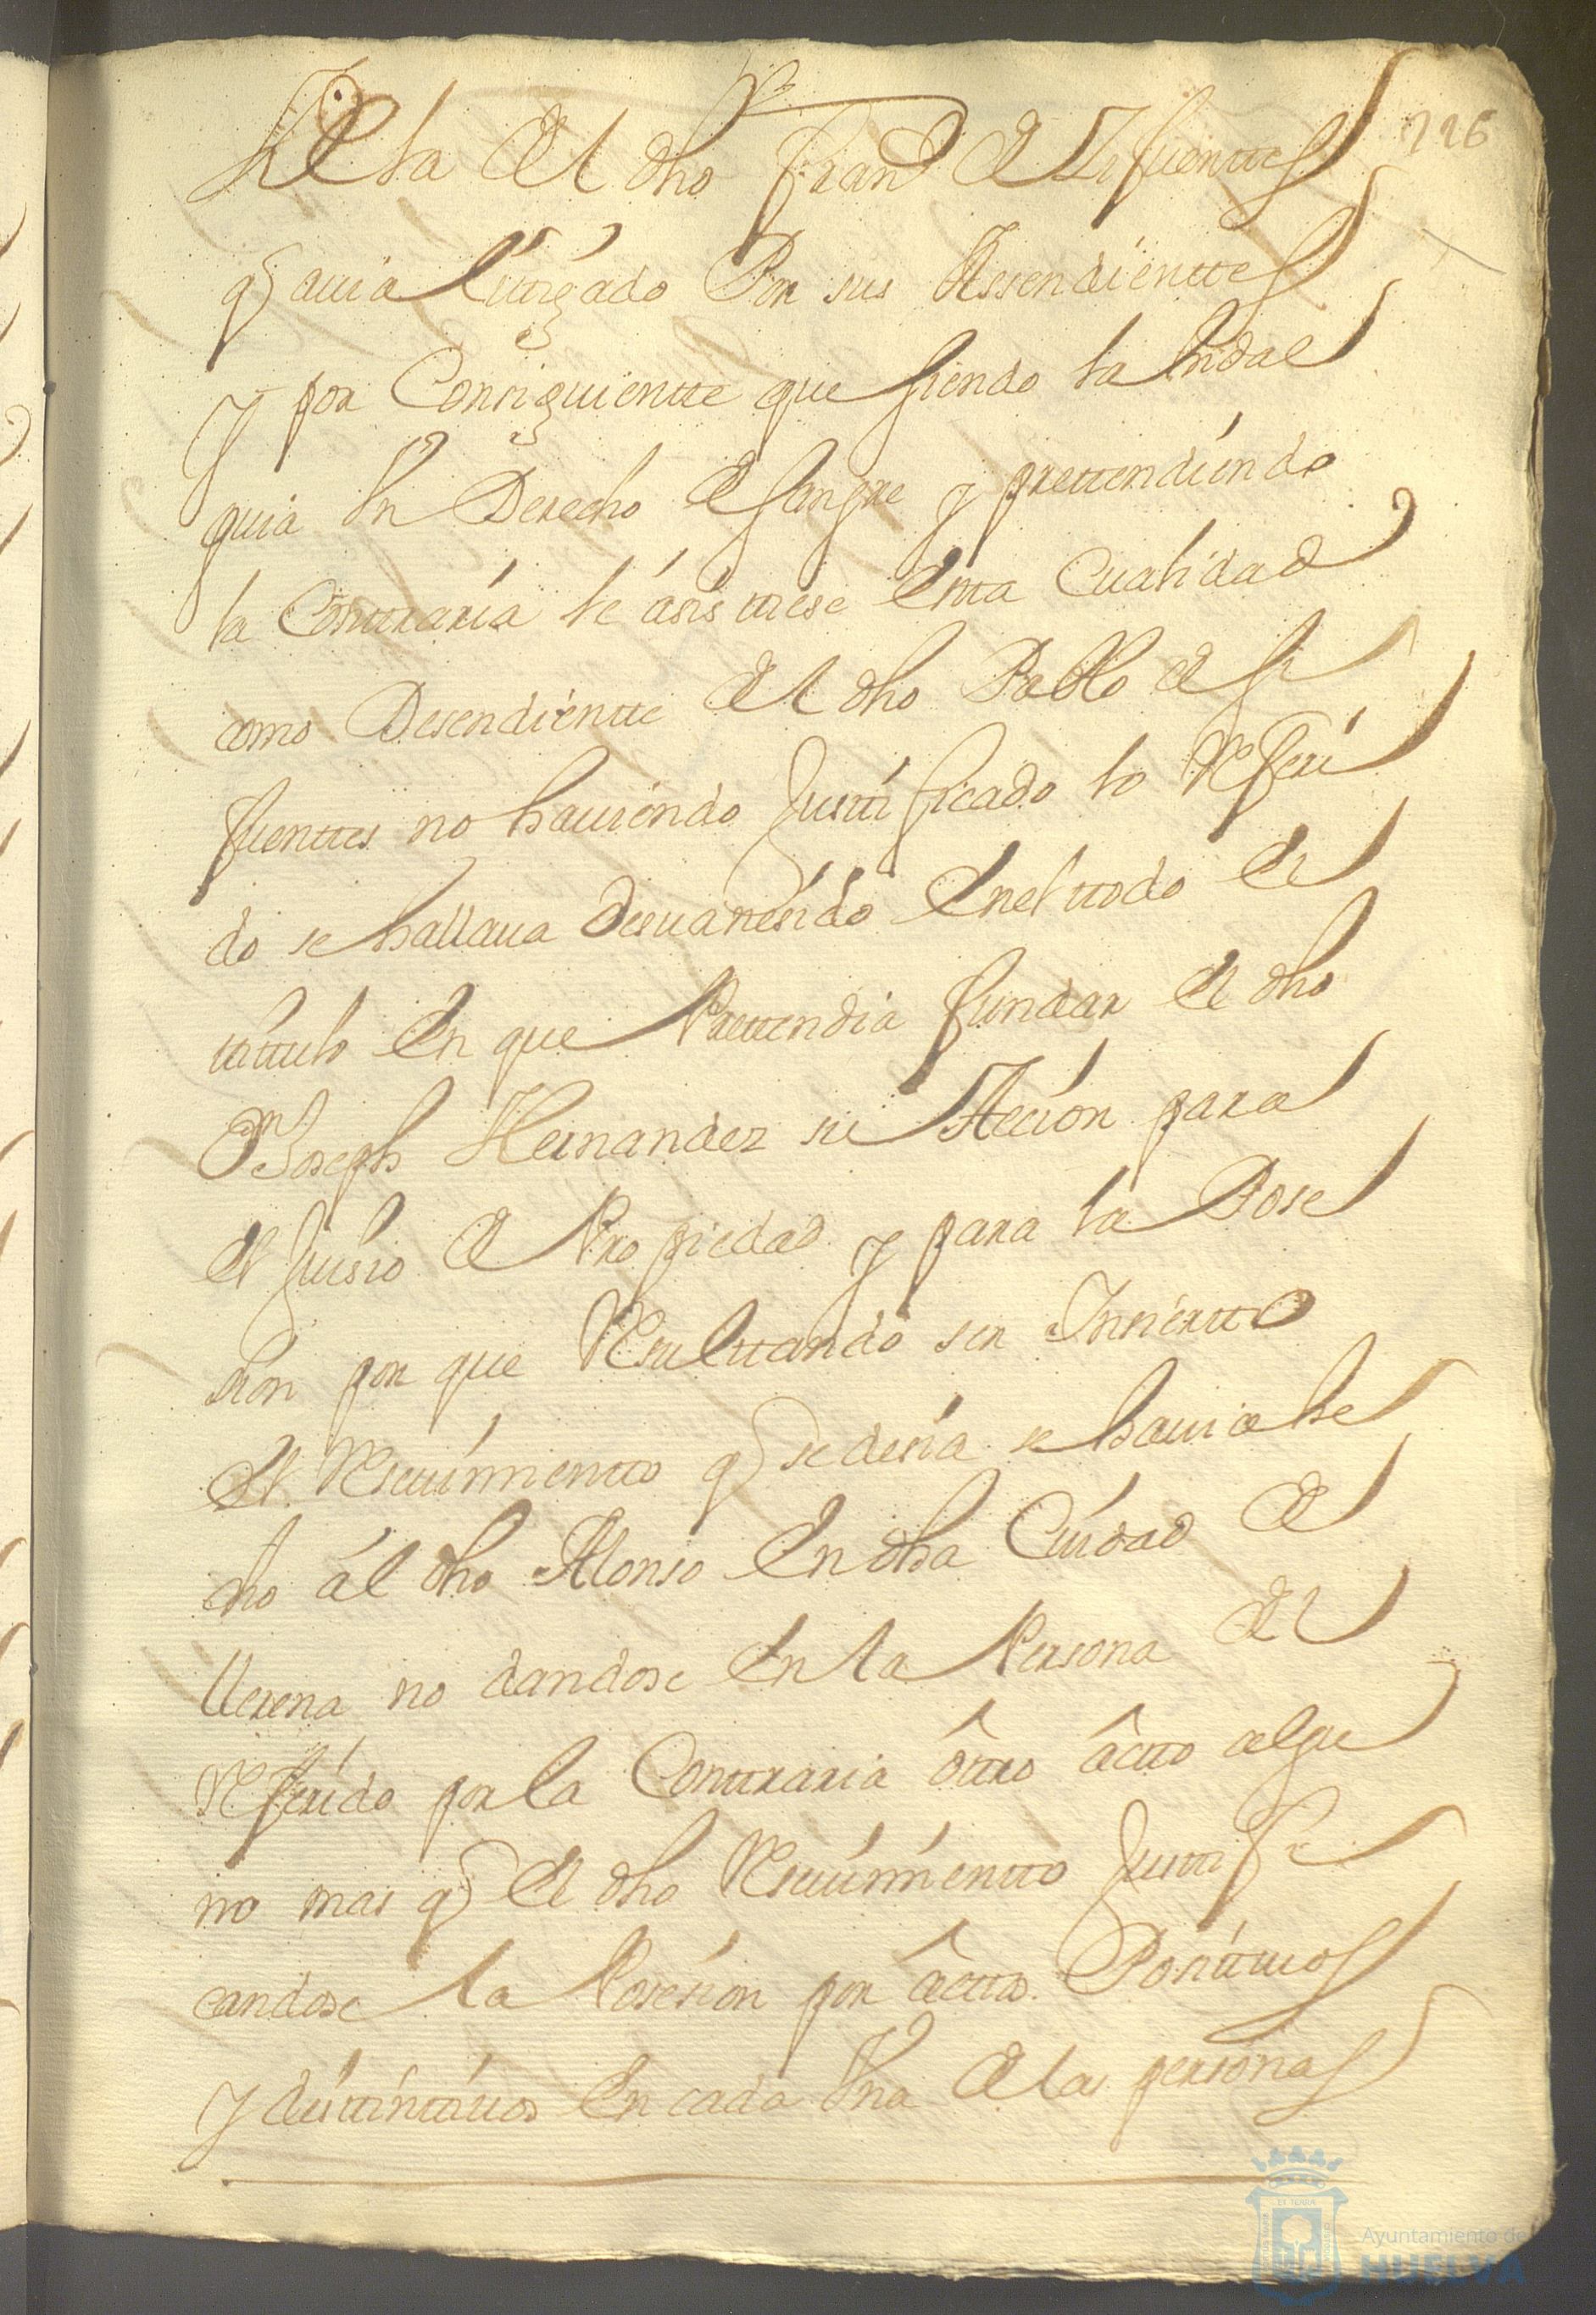 de la del dho Fran.co de Zifuenttes
q avia littigado Por sus Assendienttes
Y por Consiguientte que siendo la hidal
guia Un Derecho de sangre y prettendiendo
la Conttraria le asisttiese Estta Cualidad
como Desendientte del dho Pablo de Si
fuenttes no haviendo Justtificado lo Referi
do se hallava desvanesido Enel ttodo el
tittulo En que Prettendia fundar el dho
Dn Joseph Hernandez su Accion para
el Jusio de Propiedad y para la Pose
sion por que Resulttando ser Insiertto
el Resevimientto q se desia se havia he
cho al dho Alonso En dha Ciudad de
Llerena no dandose En la Persona del
Referido por la Conttraria ottro actto algu
no mas q el dho Resevimientto Justtifi
candose la Posesion por acttos Posittivos
y disttinttivos En cada Una de las personas
126
Ayuntamiento de
HUELVA